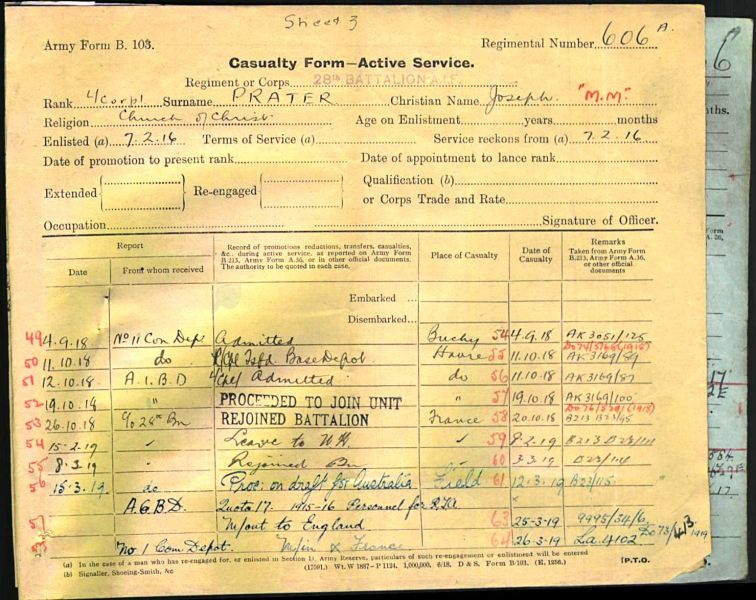 Sheet 3
Army Form B. 103.
Regimental Number 606 A.
Casualty Form—Active Service.
Regiment or Corps 28th BATTALION A.I.F.
Rank L/Corpl Surname PRATER Christian Name Joseph "M.M."
Religion Church of Christ Age on Enlistment years months
Enlisted (a) 7.2.16 Terms of Service (a) Service reckons from (a) 7.2.16
Date of promotion to present rank Date of appointment to lance rank
Extended Re-engaged Qualification (b)
or Corps Trade and Rate
Occupation Signature of Officer.
Report
Date From whom received
Record of promotions reductions, transfers, casualties, &c., during active service, as reported on Army Form B.213, Army Form A.36, or in other official documents. The authority to be quoted in each case.
Place of Casualty
Date of Casualty
Remarks
Taken from Army Form B.213, Army Form A.36, or other official documents
Embarked ...
Disembarked...
49 4.9.18 No 11 Con Dep. Admitted Buchy 54 4.9.18 AK 3051/125
50 11.10.18 do Tsfd. Base Depot. Havre 55 11.10.18 AK 3169/89
51 12.10.18 A.I.B.D Admitted do 56 11.10.18 AK 3169/87
52 19.10.18 " PROCEEDED TO JOIN UNIT " 57 19.10.18 AK 3169/100
53 26.10.18 28th Bn REJOINED BATTALION France 58 20.10.18 B213
54 15.2.19 Leave to U.K. 59 8.2.19 B213
55 8.3.19 Rejoined Bn 60 3.3.19
56 15.3.19 do Proc: on draft for Australia Field 61 12.3.19 B213/115
A.G.B.D. Quota 17. 1915-16 Personnel for
57 M/out to England 63 25-3-19 9995/34/6
No 1 Com Depot. M/in ex France 64 26-3-19 La 4102
(a) In the case of a man who has re-engaged for, or enlisted in Section D, Army Reserve, particulars of such re-engagement or enlistment will be entered
(b) Signaller, Shoeing-Smith, &c
(17591.) Wt. W 1887—P 1124. 1,000,000. 6/18. D & S. Form B/103. (E. 1256.) [P.T.O.